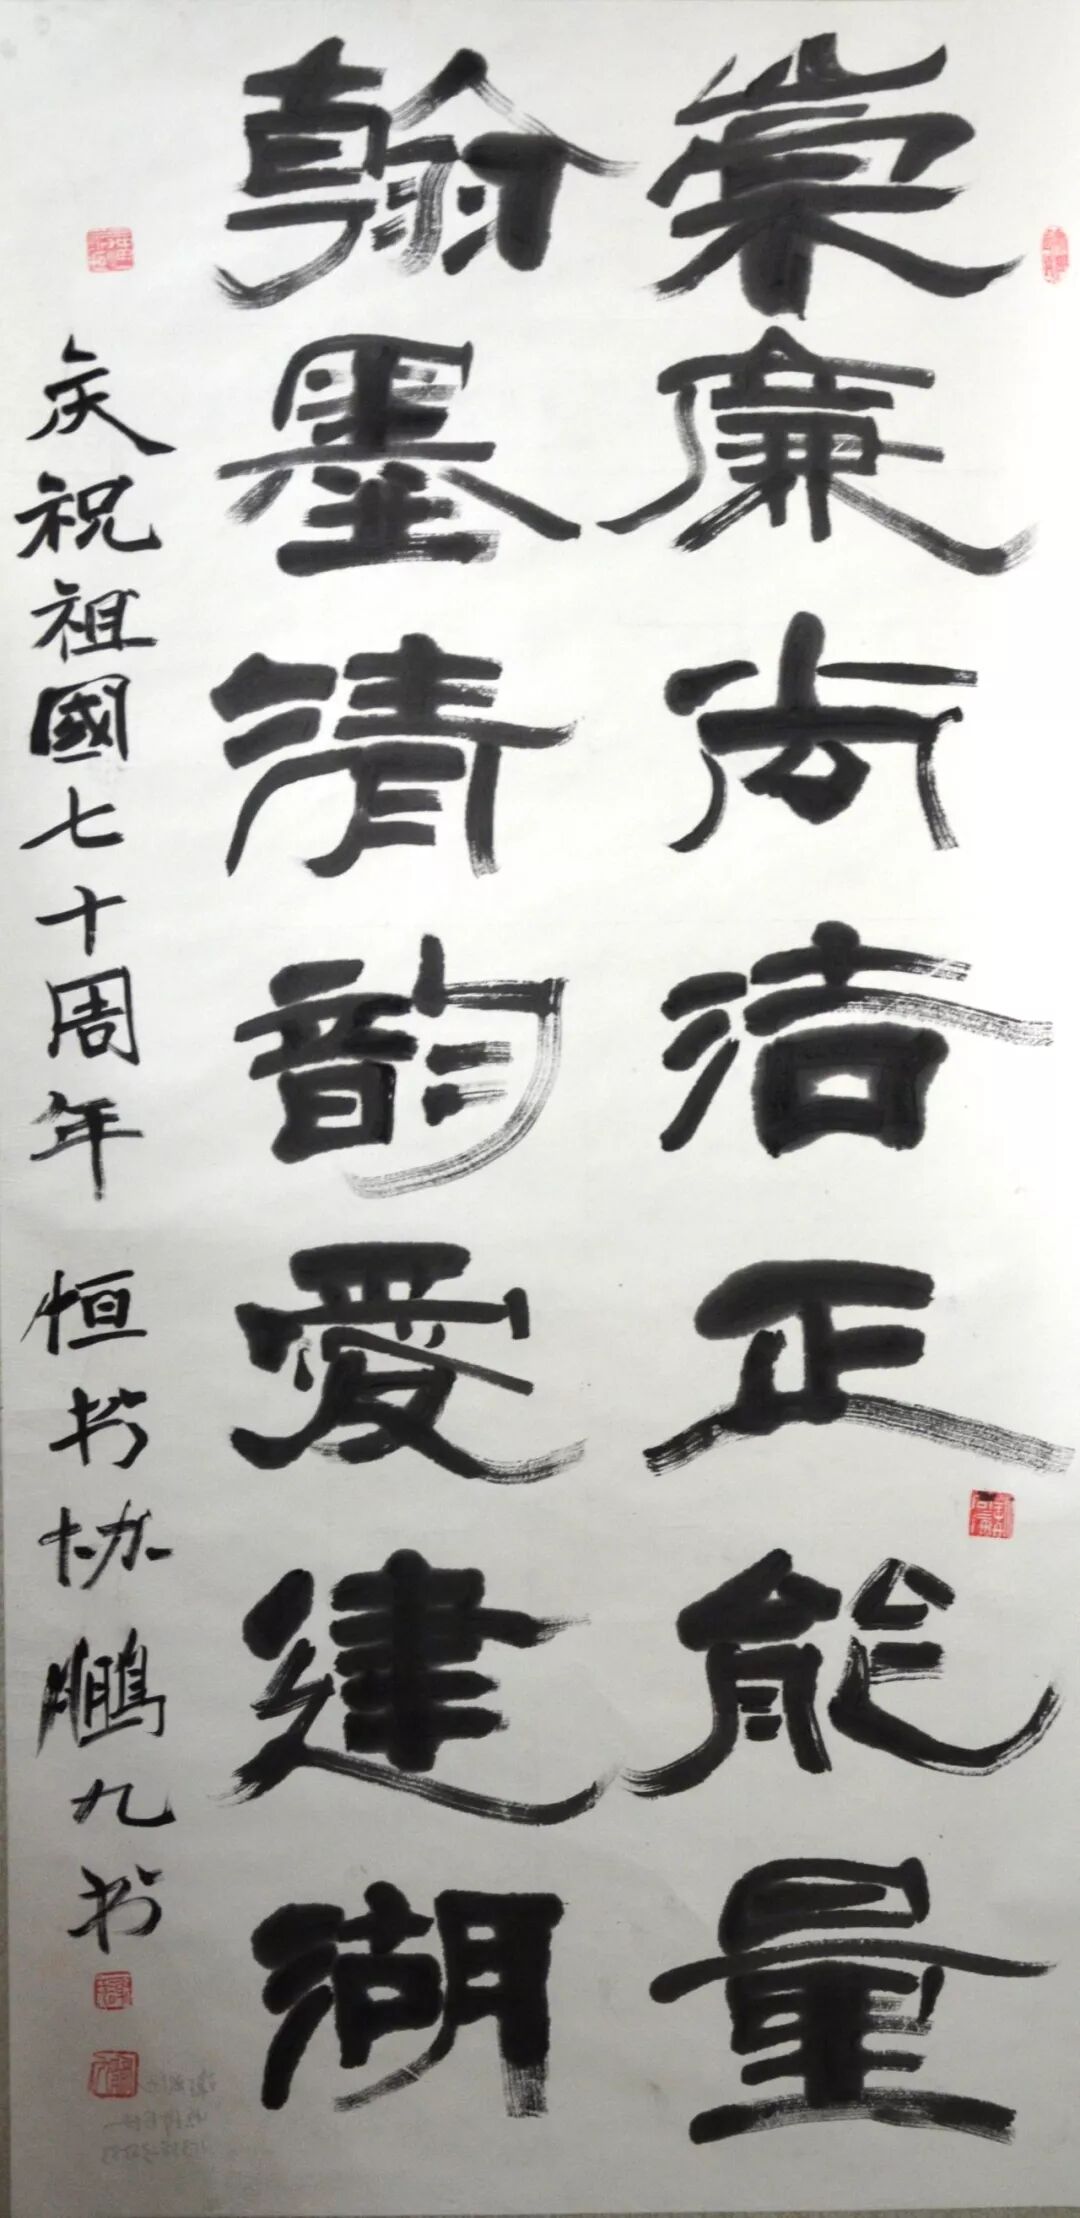 崇廉尚洁正能量
翰墨清韵愛建湖
庆祝祖國七十周年 恒书协鵬九书